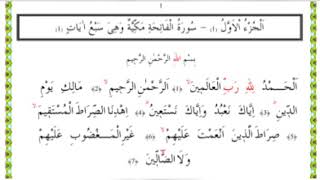 1
اَلْجُزْءُ الْاَوَّلُ (1) – سُوْرَةُ الْفَاتِحَةِ مَكِّيَّةٌ وَهِيَ سَبْعُ اٰيَاتٍ (1)
بِسْمِ اللهِ الرَّحْمٰنِ الرَّحِيْمِ
اَلْحَمْدُ لِلهِ رَبِّ الْعَالَمِيْنَ (1) اَلرَّحْمٰنِ الرَّحِيْمِ (2) مَالِكِ يَوْمِ
الدِّيْنِ (3) اِيَّاكَ نَعْبُدُ وَاِيَّاكَ نَسْتَعِيْنُ (4) اِهْدِنَا الصِّرَاطَ الْمُسْتَقِيْمَ
(5) صِرَاطَ الَّذِيْنَ اَنْعَمْتَ عَلَيْهِمْ (6) غَيْرِ الْمَغْضُوْبِ عَلَيْهِمْ
وَلَا الضَّالِّيْنَ (7)